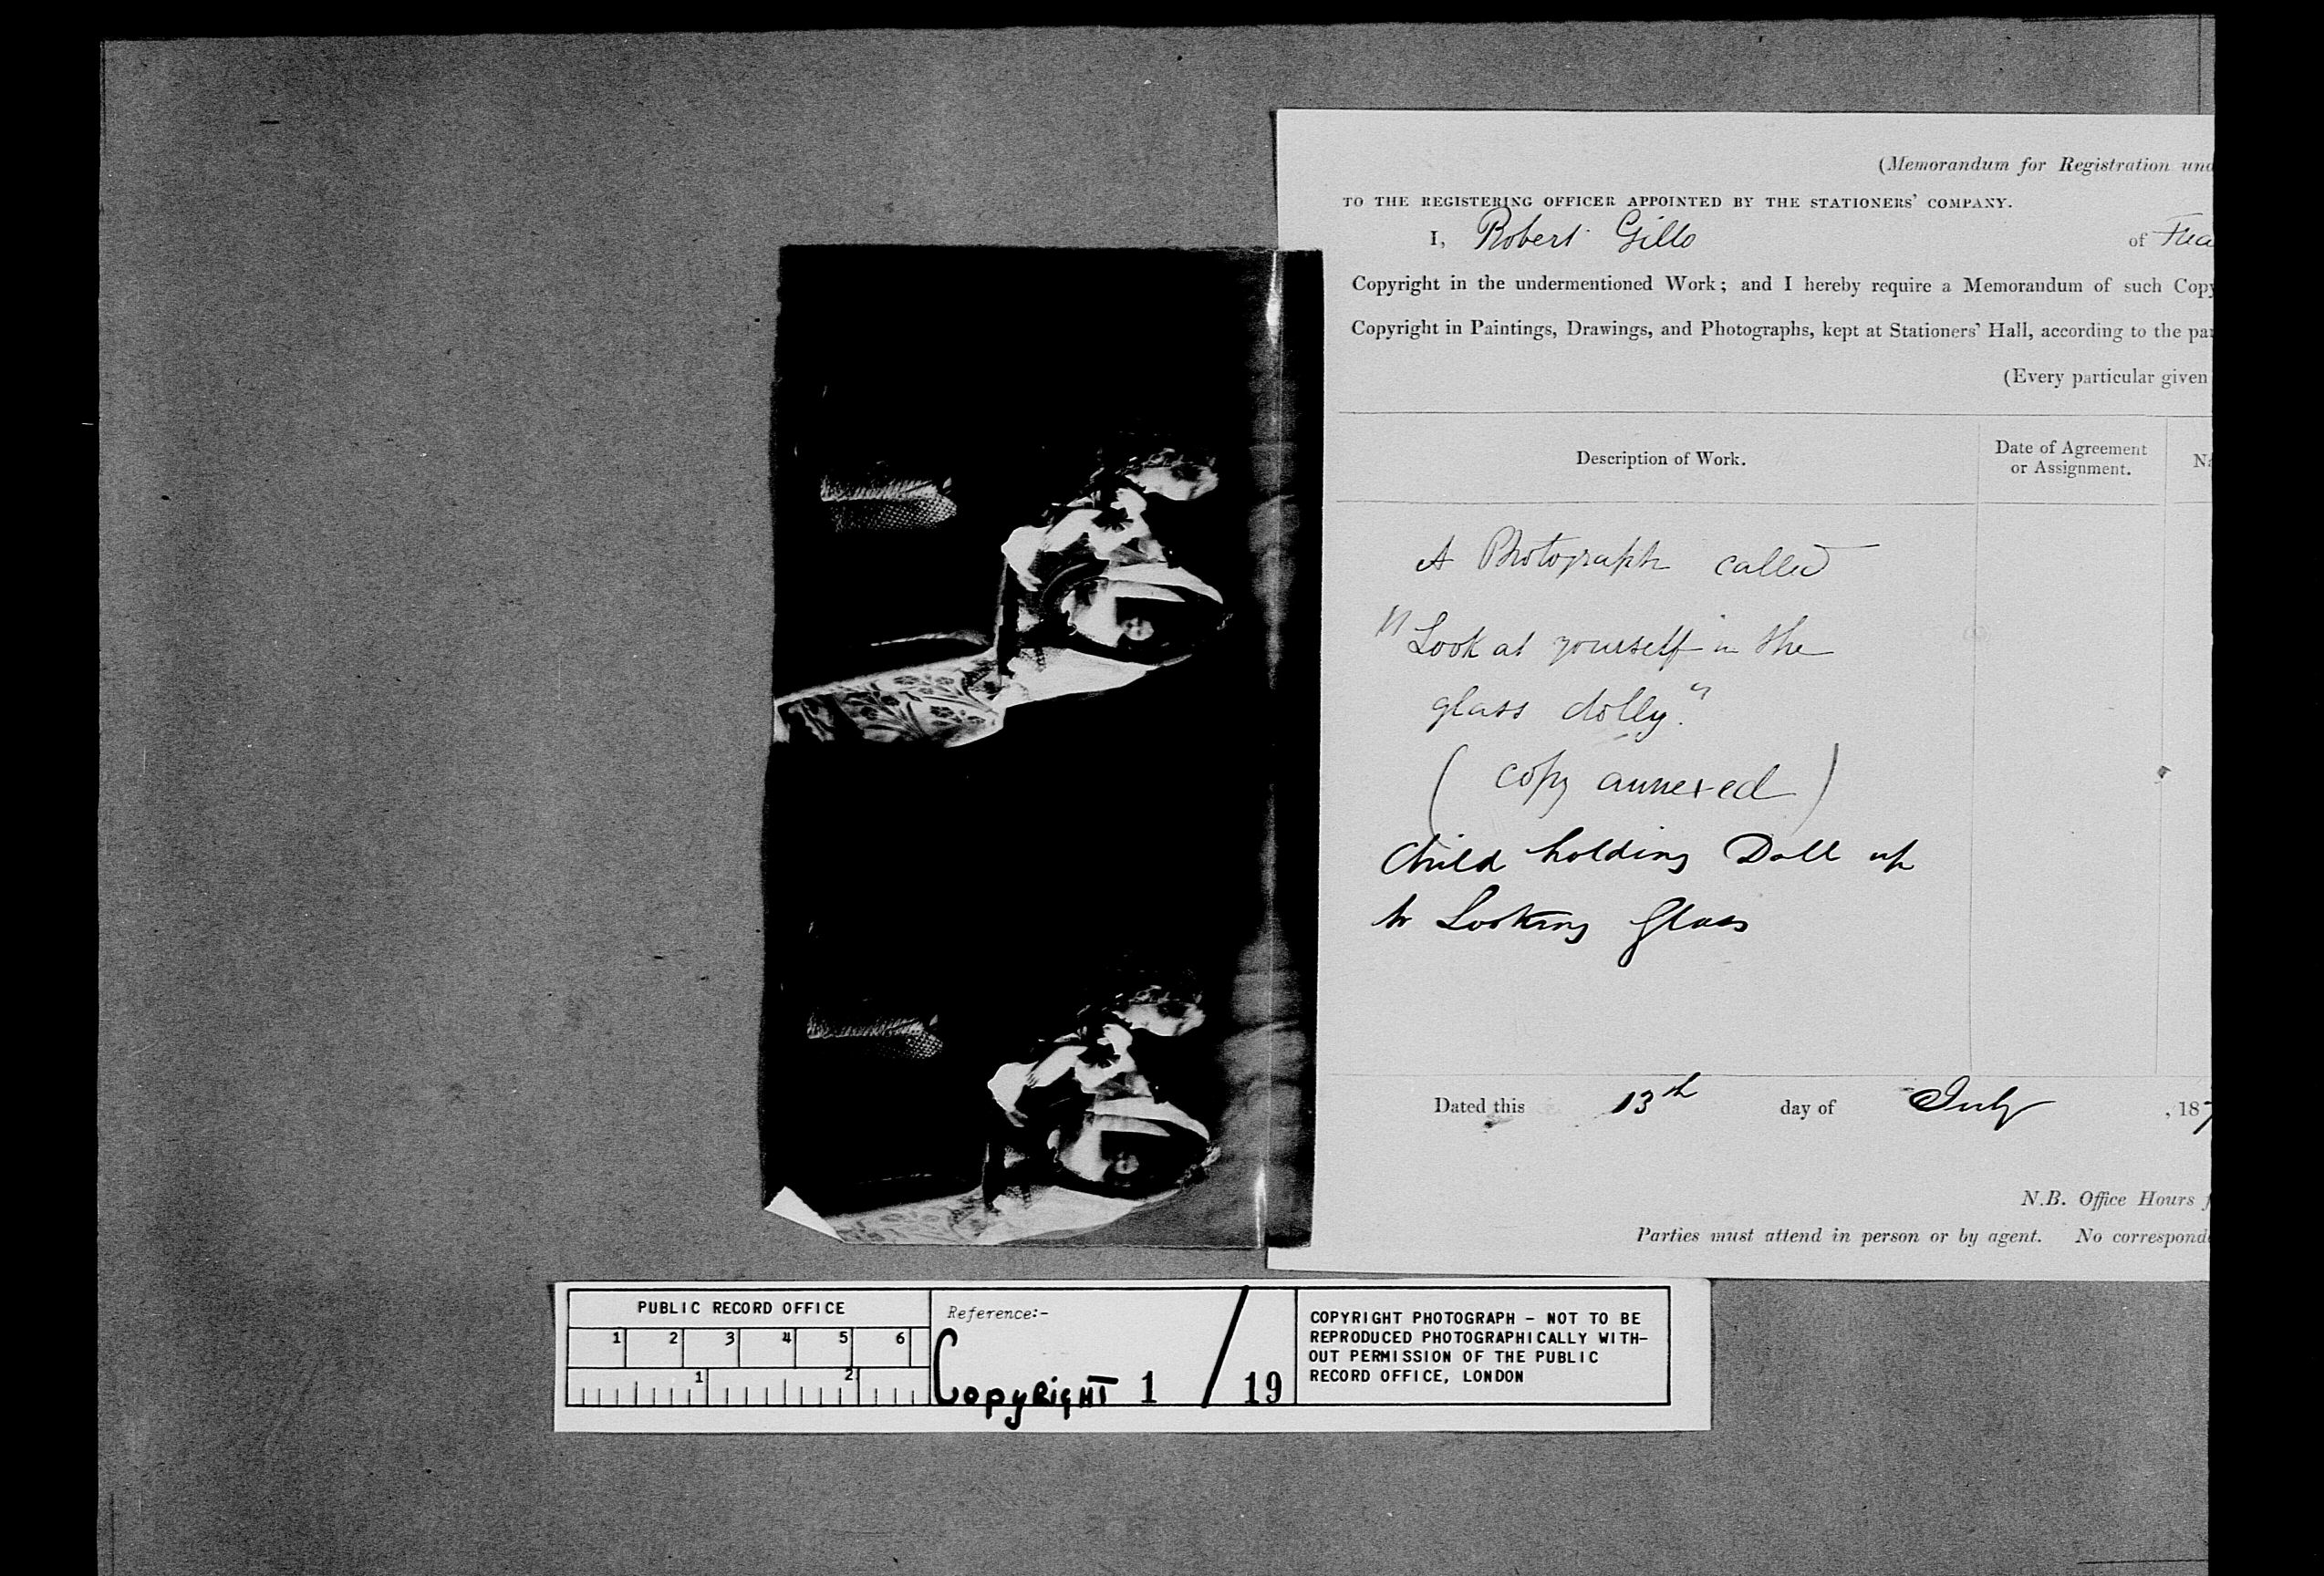 (Memorandum for Registration und
TO THE REGISTERING OFFICER APPOINTED BY THE STATIONERS' COMPANY.
I, Robert Gillo of
Copyright in the undermentioned Work; and I hereby require a Memorandum of such Copy
Copyright in Paintings, Drawings, and Photographs, kept at Stationers' Hall, according to the par
(Every particular given
Description of Work.
Date of Agreement
or Assignment.
A Photograph called
"Look at yourself in the
glass dolly."
(copy annexed)
Child holding Doll up
to Looking Glass
Dated this 13th day of July, 187
N.B. Office Hours f
Parties must attend in person or by agent. No correspond
PUBLIC RECORD OFFICE
1 2 3 4 5 6
1 2
Reference:-
Copyright 1 / 19
COPYRIGHT PHOTOGRAPH - NOT TO BE
REPRODUCED PHOTOGRAPHICALLY WITH-
OUT PERMISSION OF THE PUBLIC
RECORD OFFICE, LONDON